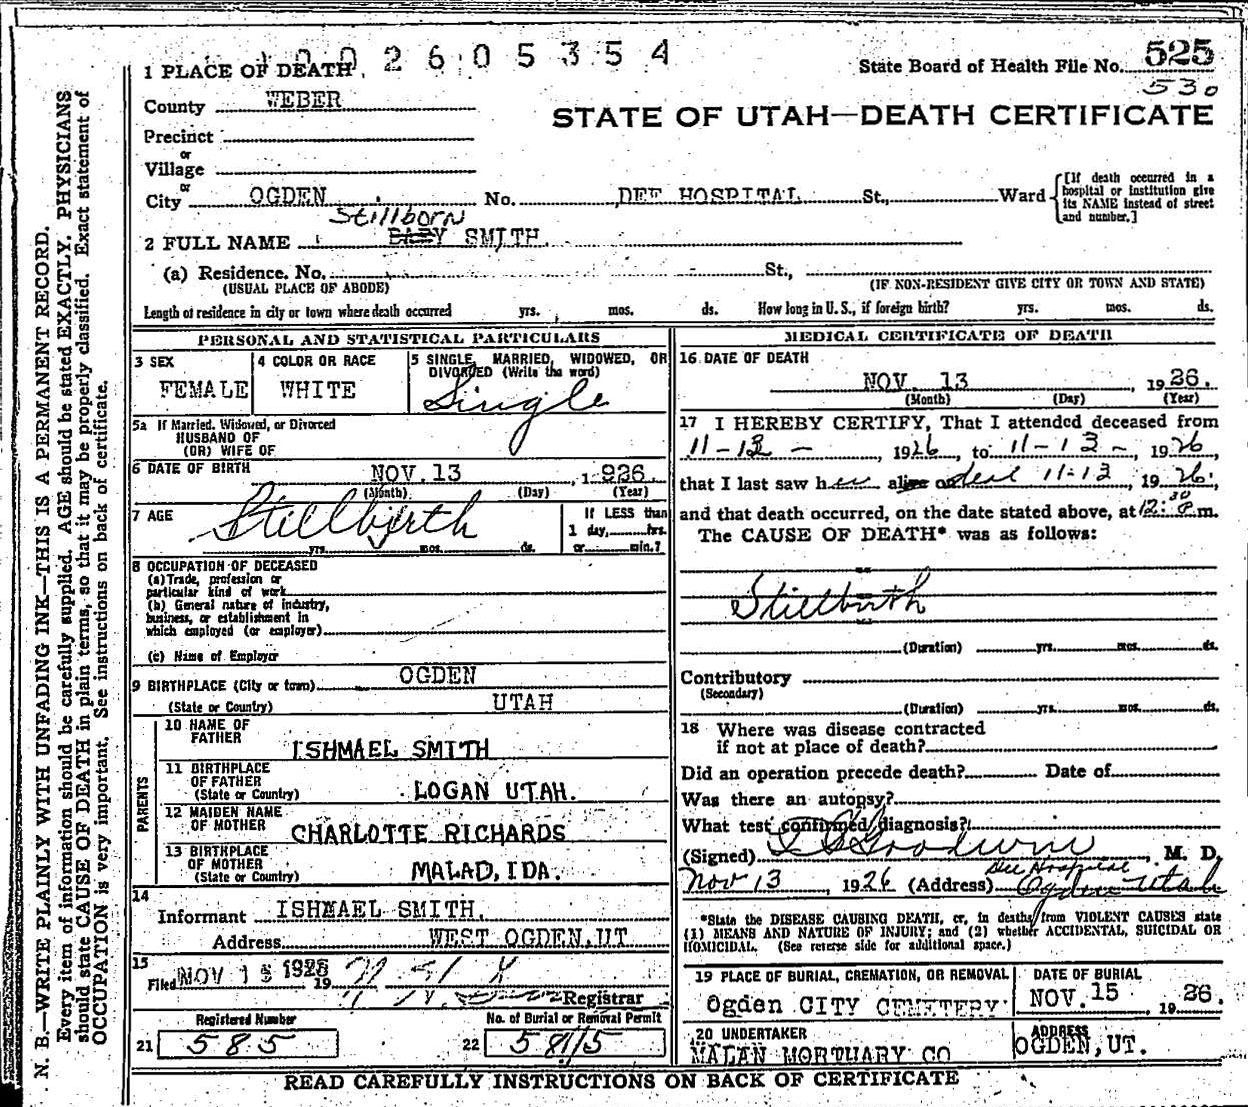 1002605354
State Board of Health File No. 525
530
1 PLACE OF DEATH
County WEBER
STATE OF UTAH—DEATH CERTIFICATE
Precinct
or
Village
or
City OGDEN No. DEE HOSPITAL St., Ward
[If death occurred in a hospital or institution give its NAME instead of street and number.]
Stillborn
2 FULL NAME BABY SMITH
(a) Residence. No. St.,
(USUAL PLACE OF ABODE) (IF NON-RESIDENT GIVE CITY OR TOWN AND STATE)
Length of residence in city or town where death occurred yrs. mos. ds. How long in U. S., if foreign birth? yrs. mos. ds.
PERSONAL AND STATISTICAL PARTICULARS
3 SEX
FEMALE
4 COLOR OR RACE
WHITE
5 SINGLE, MARRIED, WIDOWED, OR
DIVORCED (Write the word)
Single
5a If Married, Widowed, or Divorced
HUSBAND OF
(OR) WIFE OF
6 DATE OF BIRTH NOV. 13, 1926
(Month) (Day) (Year)
7 AGE Stillbirth
yrs. mos. ds.
If LESS than
1 day, hrs.
or min.?
8 OCCUPATION OF DECEASED
(a) Trade, profession or
particular kind of work
(b) General nature of industry,
business, or establishment in
which employed (or employer)
(c) Name of Employer
9 BIRTHPLACE (City or town) OGDEN
(State or Country) UTAH
PARENTS
10 NAME OF
FATHER ISHMAEL SMITH
11 BIRTHPLACE
OF FATHER
(State or Country) LOGAN UTAH.
12 MAIDEN NAME
OF MOTHER CHARLOTTE RICHARDS
13 BIRTHPLACE
OF MOTHER
(State or Country) MALAD, IDA.
14
Informant ISHMAEL SMITH.
Address WEST OGDEN, UT
15
Filed NOV 15 1926 19
Registrar
Registered Number
21 585
No. of Burial or Removal Permit
22
MEDICAL CERTIFICATE OF DEATH
16 DATE OF DEATH
NOV. 13, 1926.
(Month) (Day) (Year)
17 I HEREBY CERTIFY, That I attended deceased from
11-13-, 1926, to 11-13-, 1926,
that I last saw her alive on dead 11-13, 1926.
and that death occurred, on the date stated above, at 12:30 P.m.
The CAUSE OF DEATH* was as follows:
Stillbirth
(Duration) yrs. mos. ds.
Contributory
(Secondary)
(Duration) yrs. mos. ds.
18 Where was disease contracted
if not at place of death?
Did an operation precede death? Date of
Was there an autopsy?
What test confirmed diagnosis?
(Signed) Goodwin, M. D.
Dee Hospital
Nov 13, 1926 (Address) Ogden Utah
*State the DISEASE CAUSING DEATH, or, in deaths from VIOLENT CAUSES state
(1) MEANS AND NATURE OF INJURY; and (2) whether ACCIDENTAL, SUICIDAL OR
HOMICIDAL. (See reverse side for additional space.)
19 PLACE OF BURIAL, CREMATION, OR REMOVAL
Ogden CITY CEMETERY
DATE OF BURIAL
NOV. 15, 1926.
20 UNDERTAKER
MALAN MORTUARY CO
ADDRESS
OGDEN, UT.
READ CAREFULLY INSTRUCTIONS ON BACK OF CERTIFICATE
N. B.—WRITE PLAINLY WITH UNFADING INK—THIS IS A PERMANENT RECORD.
Every item of information should be carefully supplied. AGE should be stated EXACTLY. PHYSICIANS
should state CAUSE OF DEATH in plain terms, so that it may be properly classified. Exact statement of
OCCUPATION is very important. See instructions on back of certificate.